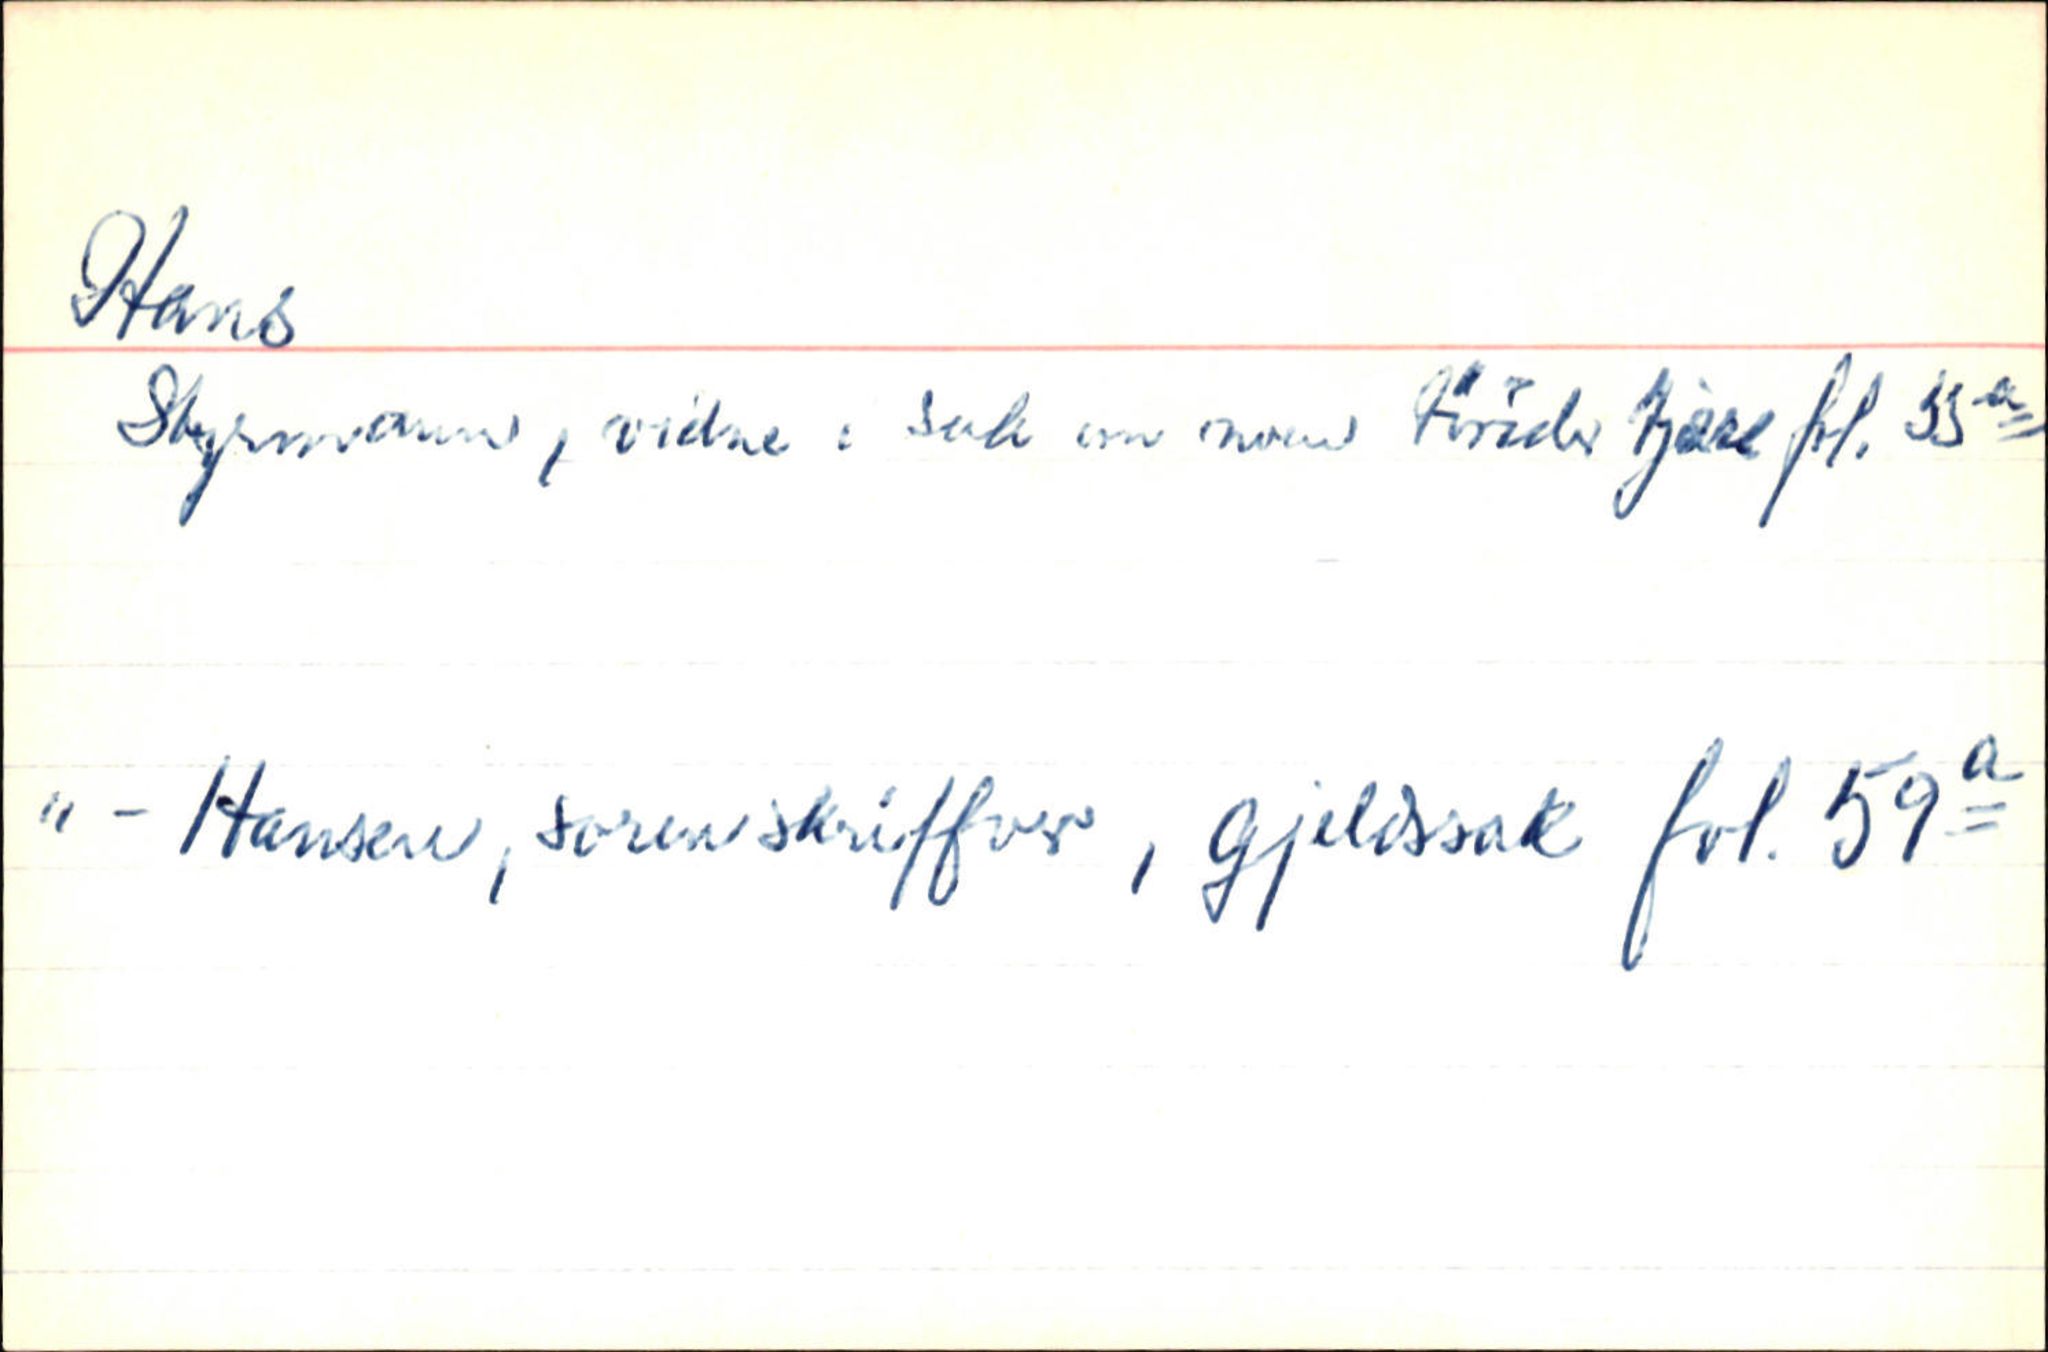 Hans
Styrmann, vidne i sak om noen tönder tjære fol. 55 a
" - Hansen, sorenskriffver, gjeldssak fol. 59 a